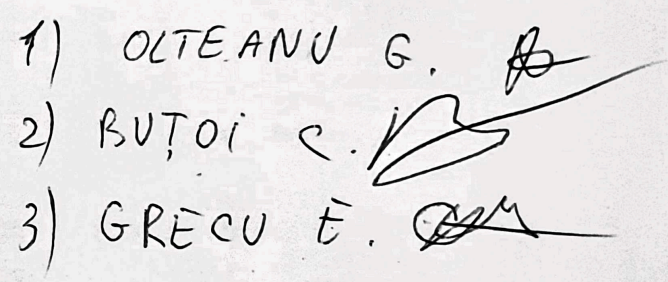 1) OLTEANU G.
2) BUȚOI C.
3) GRECU E.